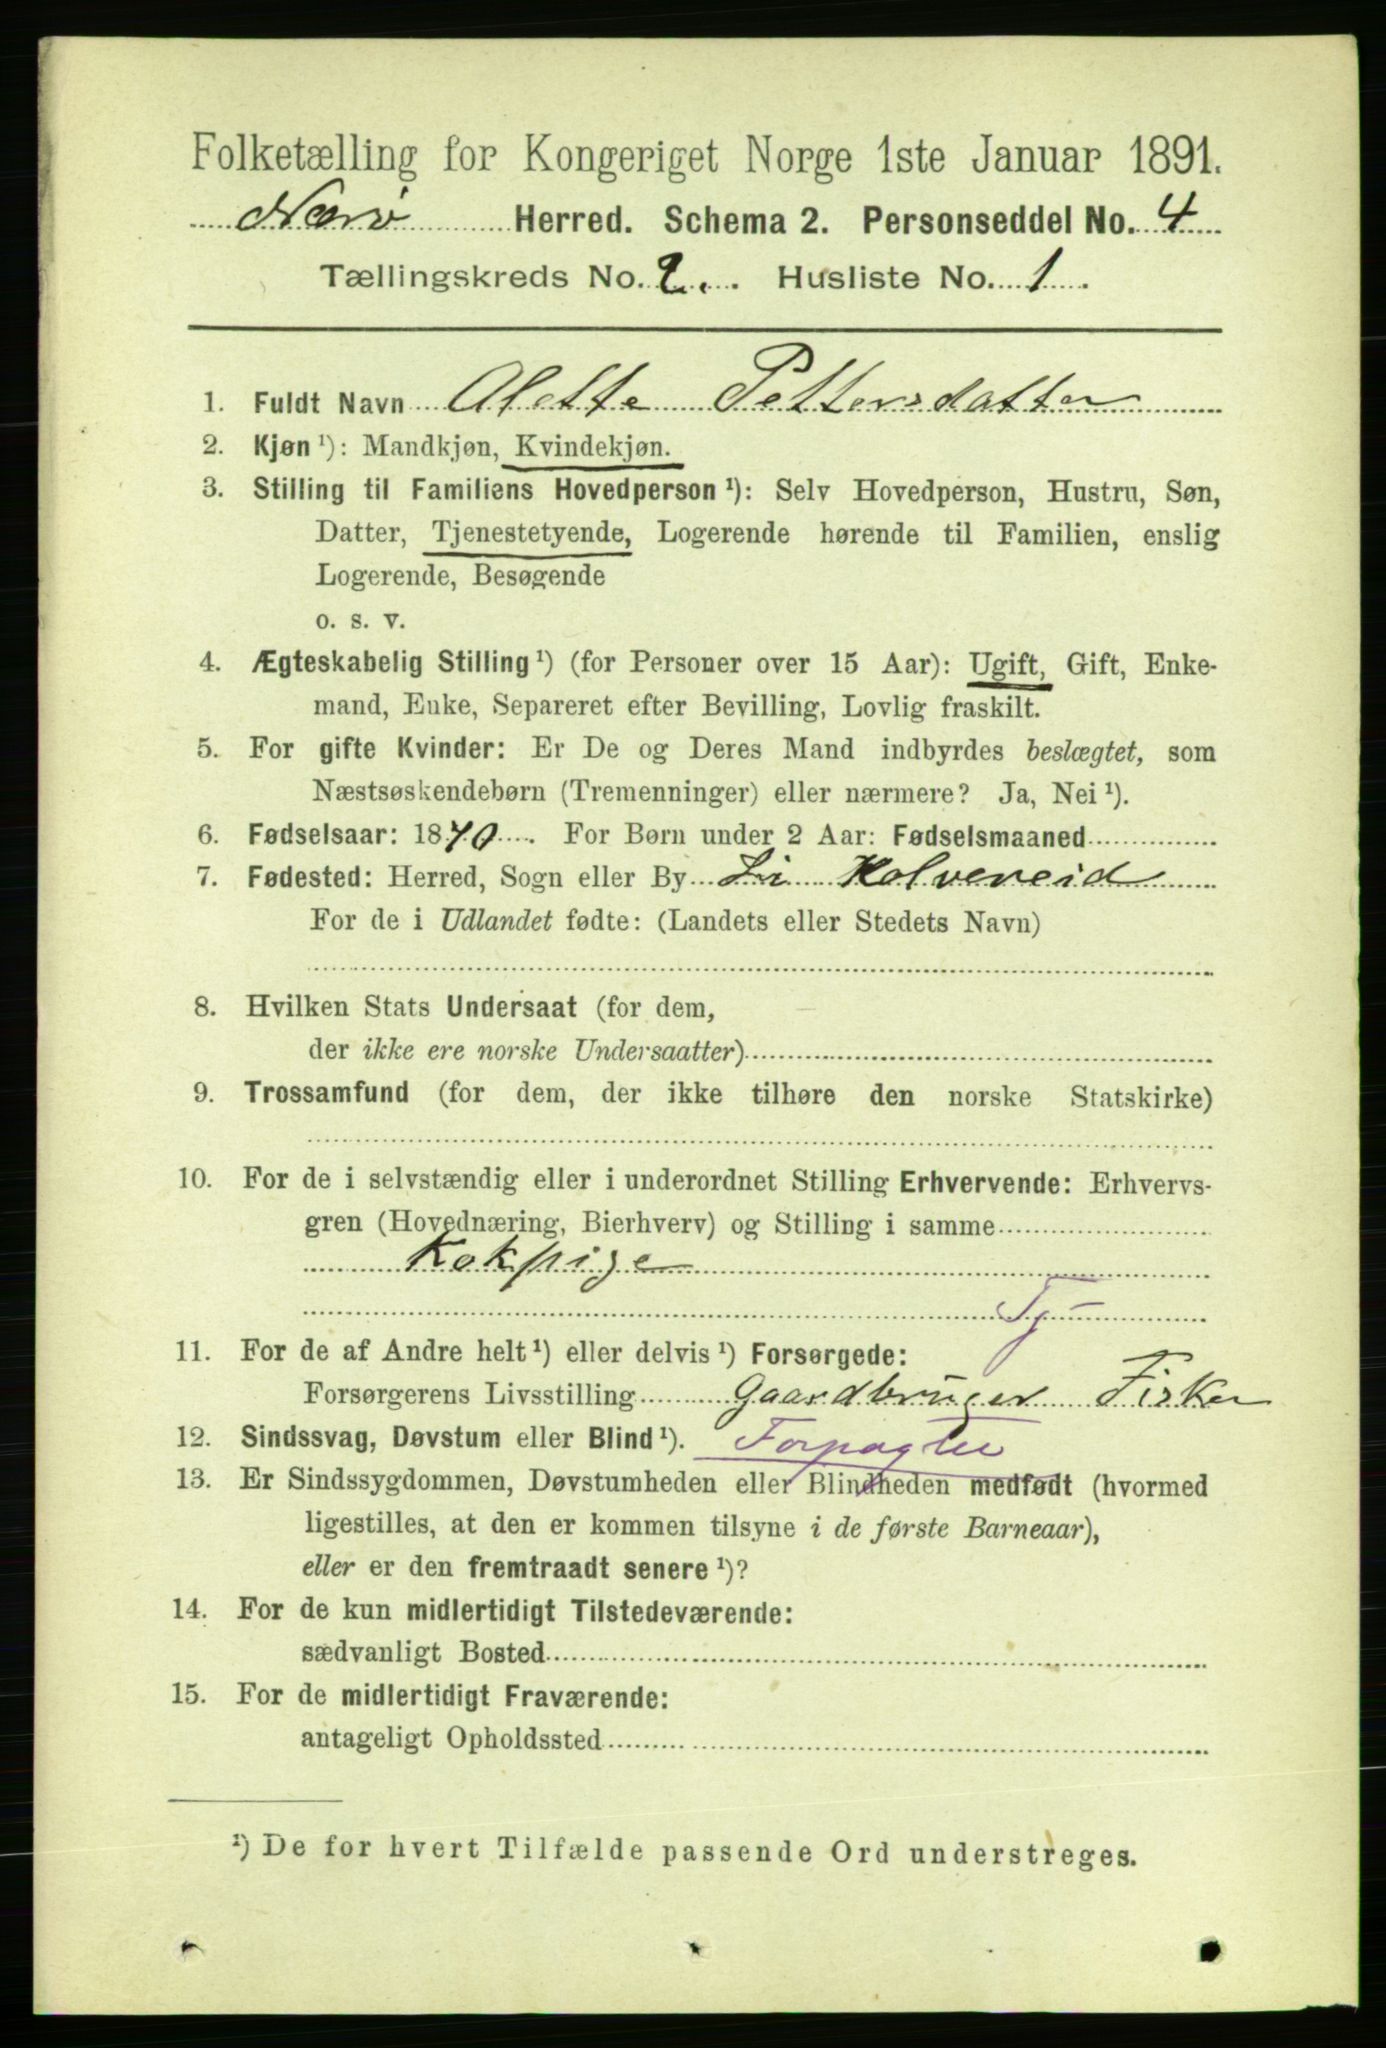 Folketælling for Kongeriget Norge 1ste Januar 1891.
Nærø Herred. Schema 2. Personseddel No. 4
Tællingskreds No. 2. Husliste No. 1.
1. Fuldt Navn Alette Pettersdatter
2. Kjøn ¹): Mandkjøn, Kvindekjøn.
3. Stilling til Familiens Hovedperson ¹): Selv Hovedperson, Hustru, Søn,
Datter, Tjenestetyende, Logerende hørende til Familien, enslig
Logerende, Besøgende
o. s. v.
4. Ægteskabelig Stilling ¹) (for Personer over 15 Aar): Ugift, Gift, Enke-
mand, Enke, Separeret efter Bevilling, Lovlig fraskilt.
5. For gifte Kvinder: Er De og Deres Mand indbyrdes beslægtet, som
Næstsøskendebørn (Tremenninger) eller nærmere? Ja, Nei ¹).
6. Fødselsaar: 1870. For Børn under 2 Aar: Fødselsmaaned
7. Fødested: Herred, Sogn eller By Kolvereid
For de i Udlandet fødte: (Landets eller Stedets Navn)
8. Hvilken Stats Undersaat (for dem,
der ikke ere norske Undersaatter)
9. Trossamfund (for dem, der ikke tilhøre den norske Statskirke)
10. For de i selvstændig eller i underordnet Stilling Erhvervende: Erhvervs-
gren (Hovednæring, Bierhverv) og Stilling i samme
Kokpige
Tj
11. For de af Andre helt ¹) eller delvis ¹) Forsørgede:
Forsørgerens Livsstilling Gaardbruger Fisker
12. Sindssvag, Døvstum eller Blind ¹). Forpagter
13. Er Sindssygdommen, Døvstumheden eller Blindheden medfødt (hvormed
ligestilles, at den er kommen tilsyne i de første Barneaar),
eller er den fremtraadt senere ¹)?
14. For de kun midlertidigt Tilstedeværende:
sædvanligt Bosted
15. For de midlertidigt Fraværende:
antageligt Opholdssted
¹) De for hvert Tilfælde passende Ord understreges.